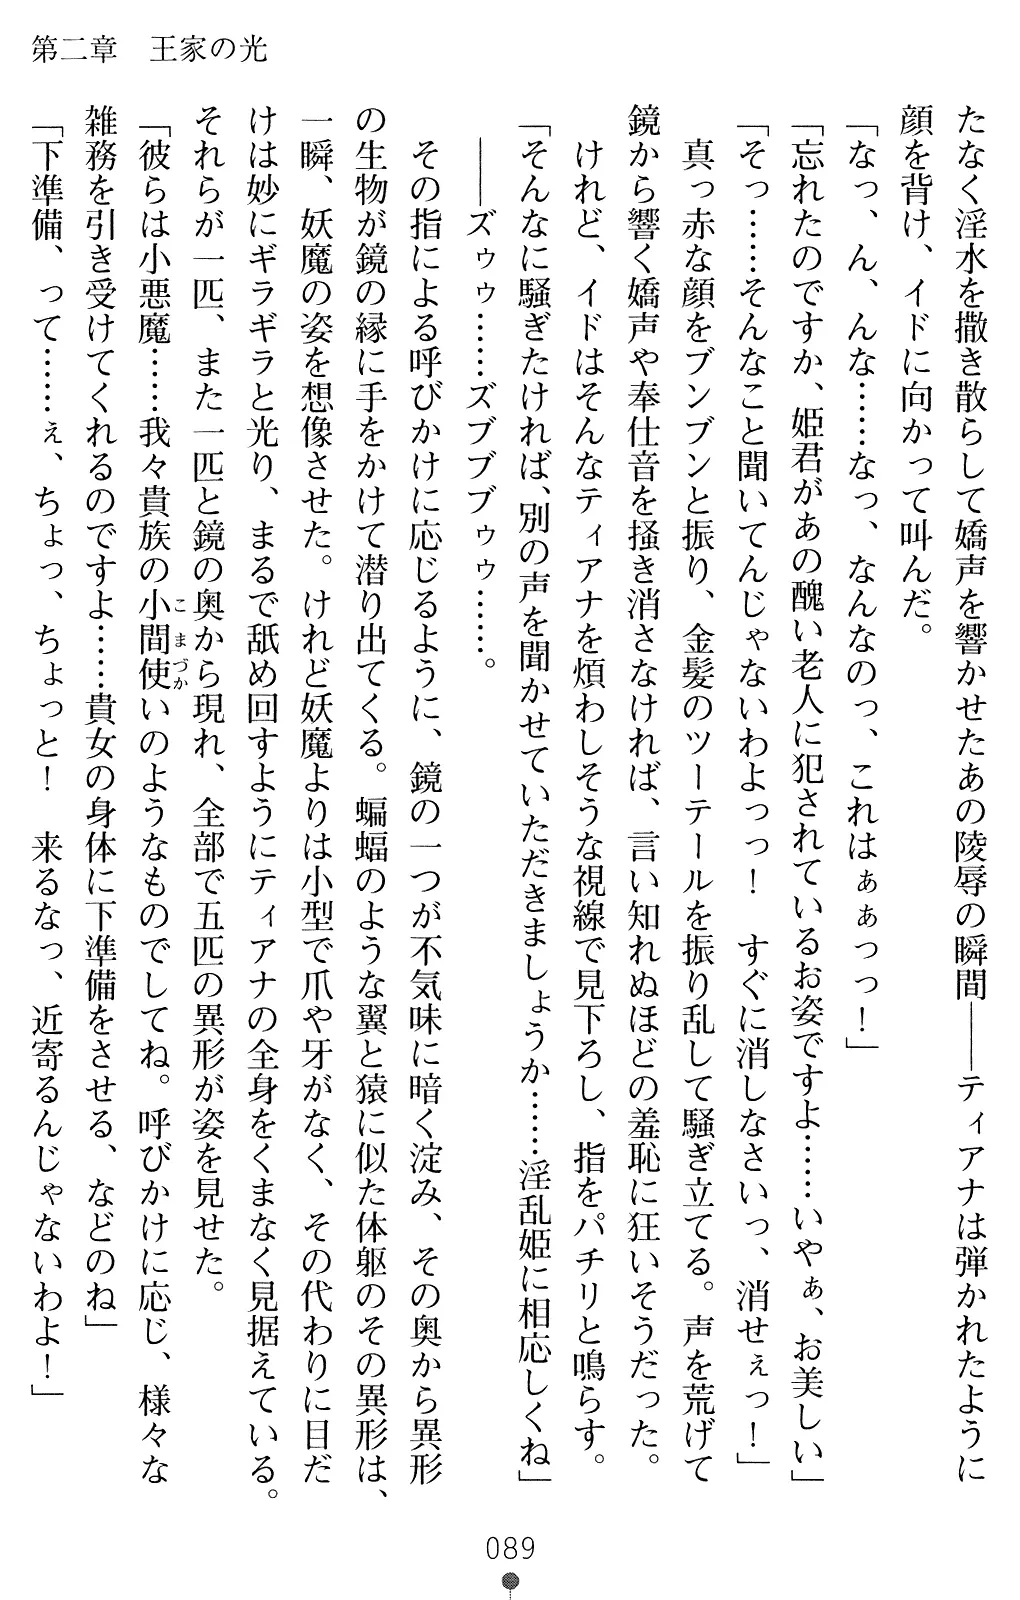 第二章　王家の光
たなく淫水を撒き散らして嬌声を響かせたあの陵辱の瞬間――ティアナは弾かれたように
顔を背け、イドに向かって叫んだ。
「なっ、ん、んな……なっ、なんなのっ、これはぁぁっっ！」
「忘れたのですか、姫君があの醜い老人に犯されているお姿ですよ……いやぁ、お美しい」
「そっ……そんなこと聞いてんじゃないわよっっ！　すぐに消しなさいっ、消せぇっ！」
　真っ赤な顔をブンブンと振り、金髪のツーテールを振り乱して騒ぎ立てる。声を荒げて
鏡から響く嬌声や奉仕音を掻き消さなければ、言い知れぬほどの羞恥に狂いそうだった。
　けれど、イドはそんなティアナを煩わしそうな視線で見下ろし、指をパチリと鳴らす。
「そんなに騒ぎたければ、別の声を聞かせていただきましょうか……淫乱姫に相応しくね」
　――ズゥゥ……ズブブブゥゥ……。
　その指による呼びかけに応じるように、鏡の一つが不気味に暗く淀み、その奥から異形
の生物が鏡の縁に手をかけて潜り出てくる。蝙蝠のような翼と猿に似た体躯のその異形は、
一瞬、妖魔の姿を想像させた。けれど妖魔よりは小型で爪や牙がなく、その代わりに目だ
けは妙にギラギラと光り、まるで舐め回すようにティアナの全身をくまなく見据えている。
それらが一匹、また一匹と鏡の奥から現れ、全部で五匹の異形が姿を見せた。
「彼らは小悪魔……我々貴族の小間使（こまづか）いのようなものでしてね。呼びかけに応じ、様々な
雑務を引き受けてくれるのですよ……貴女の身体に下準備をさせる、などのね」
「下準備、って……ぇ、ちょっ、ちょっと！　来るなっ、近寄るんじゃないわよ！」
089